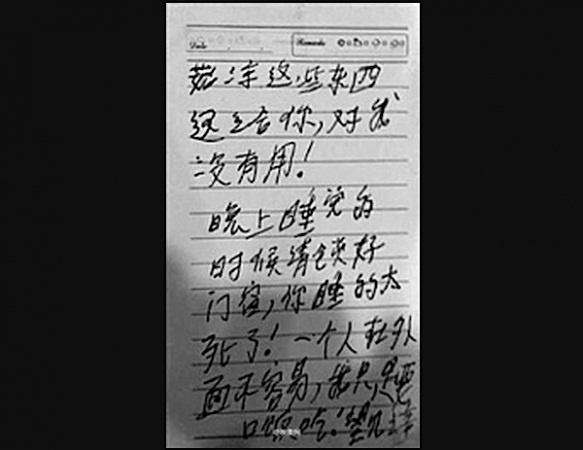 Date
Remarks
菇凉这些东西
还给你,对我
没有用!
晚上睡觉的
时候请锁好
门窗,你睡的太
死了!一个人在外
面不容易,我只是要
口饭吃!望见谅